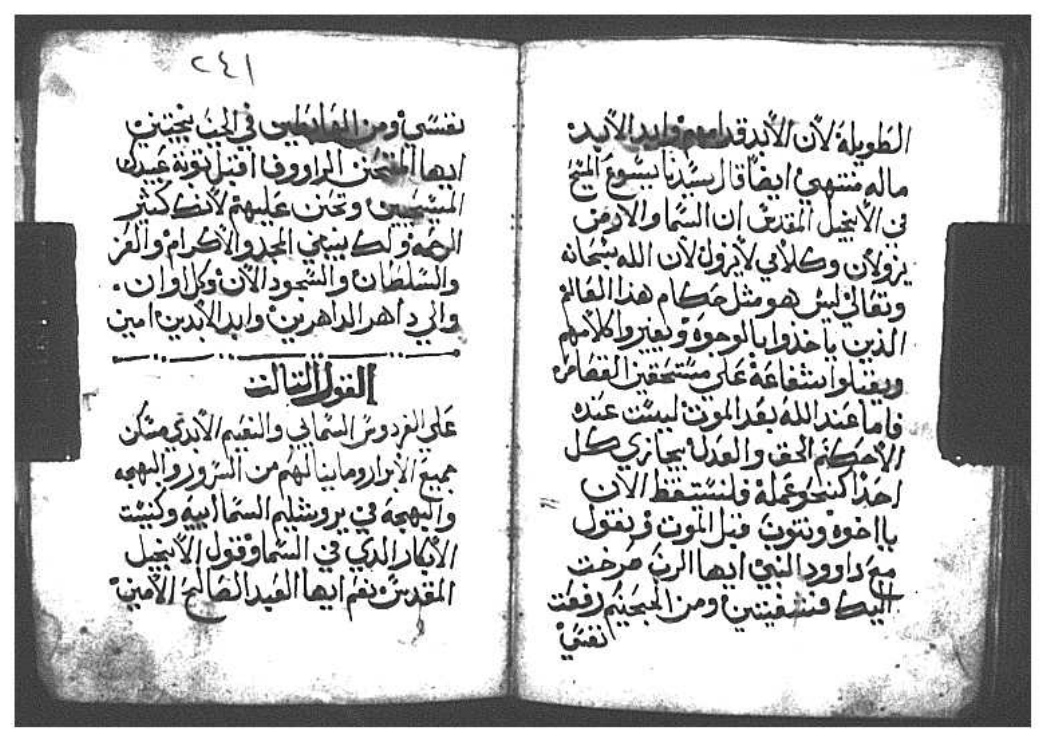 الطويلة لأن الأبد قدامهم وابد الأبد
ماله منتهي ايضاً قال سيدنا يسوع المسيح
في الأنجيل المقدس ان السما والارض
يزولان وكلامي لايزول لأن الله سبحانه
وتعالي ليس هو مثل حكام هذا العالم
الذين ياخذوا بالوجوه ويغيروا كلامهم
ويقبلوا شفاعة علي مستحقين القصاص
فاما عند الله بعد الموت ليست عنده
الأحكام الحق والعدل يجازي كل
احد كنحو عمله فلنستيقظ الان
يااخوه ونتوب قبل الموت ونقول
مع داوود النبي ايها الرب صرخت
اليك فشفيتني ومن الجحيم رفعت
نفسي
٢٤١
نفسي ومن الهابطين في الجب نجيتني
ايها المتحنن الرااووف اقبل توبة عبيدك
المسيحيين وتحنن عليهم لأنك كثير
الرحمه ولك ينبغي المجد والاكرام والعز
والسلطان والسجود الأن وكل اوان
والي دأهر الداهرين وابد الأبدين امين
القول الثالث
علي الفردوس السمايي والنعيم الأبدي مسكن
جميع الأبرار وما ينالهم من السرور والبهجه
والبهجه في يروشليم السماايية وكنيست
الأبكار الذي في السما وقول الأنجيل
المقدس نعم ايها العبد الصالح الأمين